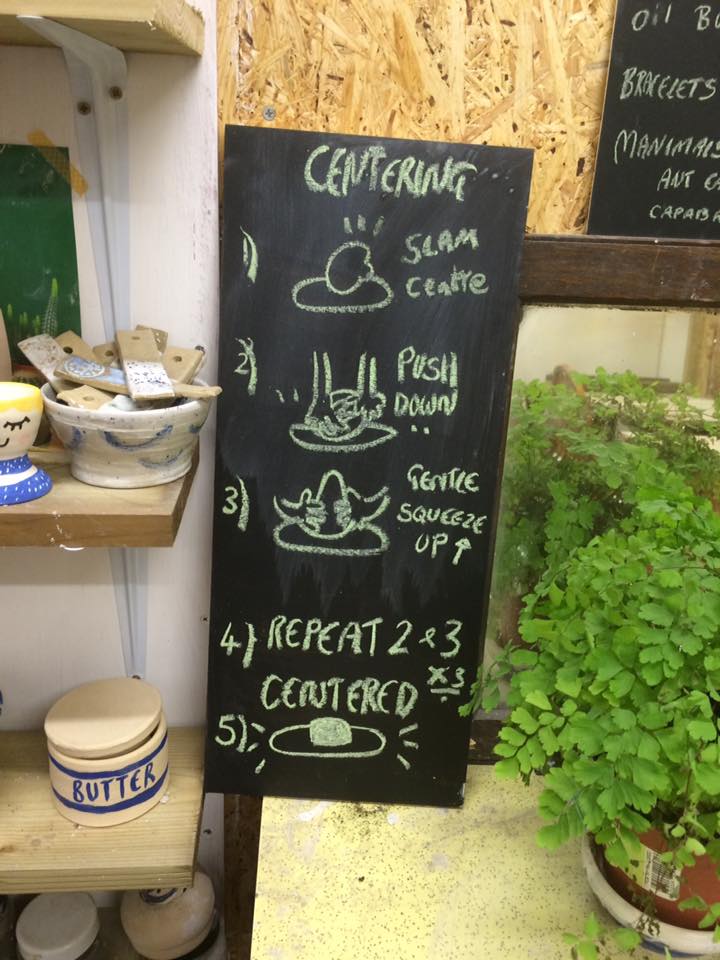 CENTERING
1) SLAM
CENTRE
2) PUSH
DOWN
3) GENTLE
SQUEEZE
UP ↑
4) REPEAT 2 & 3
x3
CENTERED
5)
OIL BU
BRACELETS
MANIMALS
ANT
BUTTER